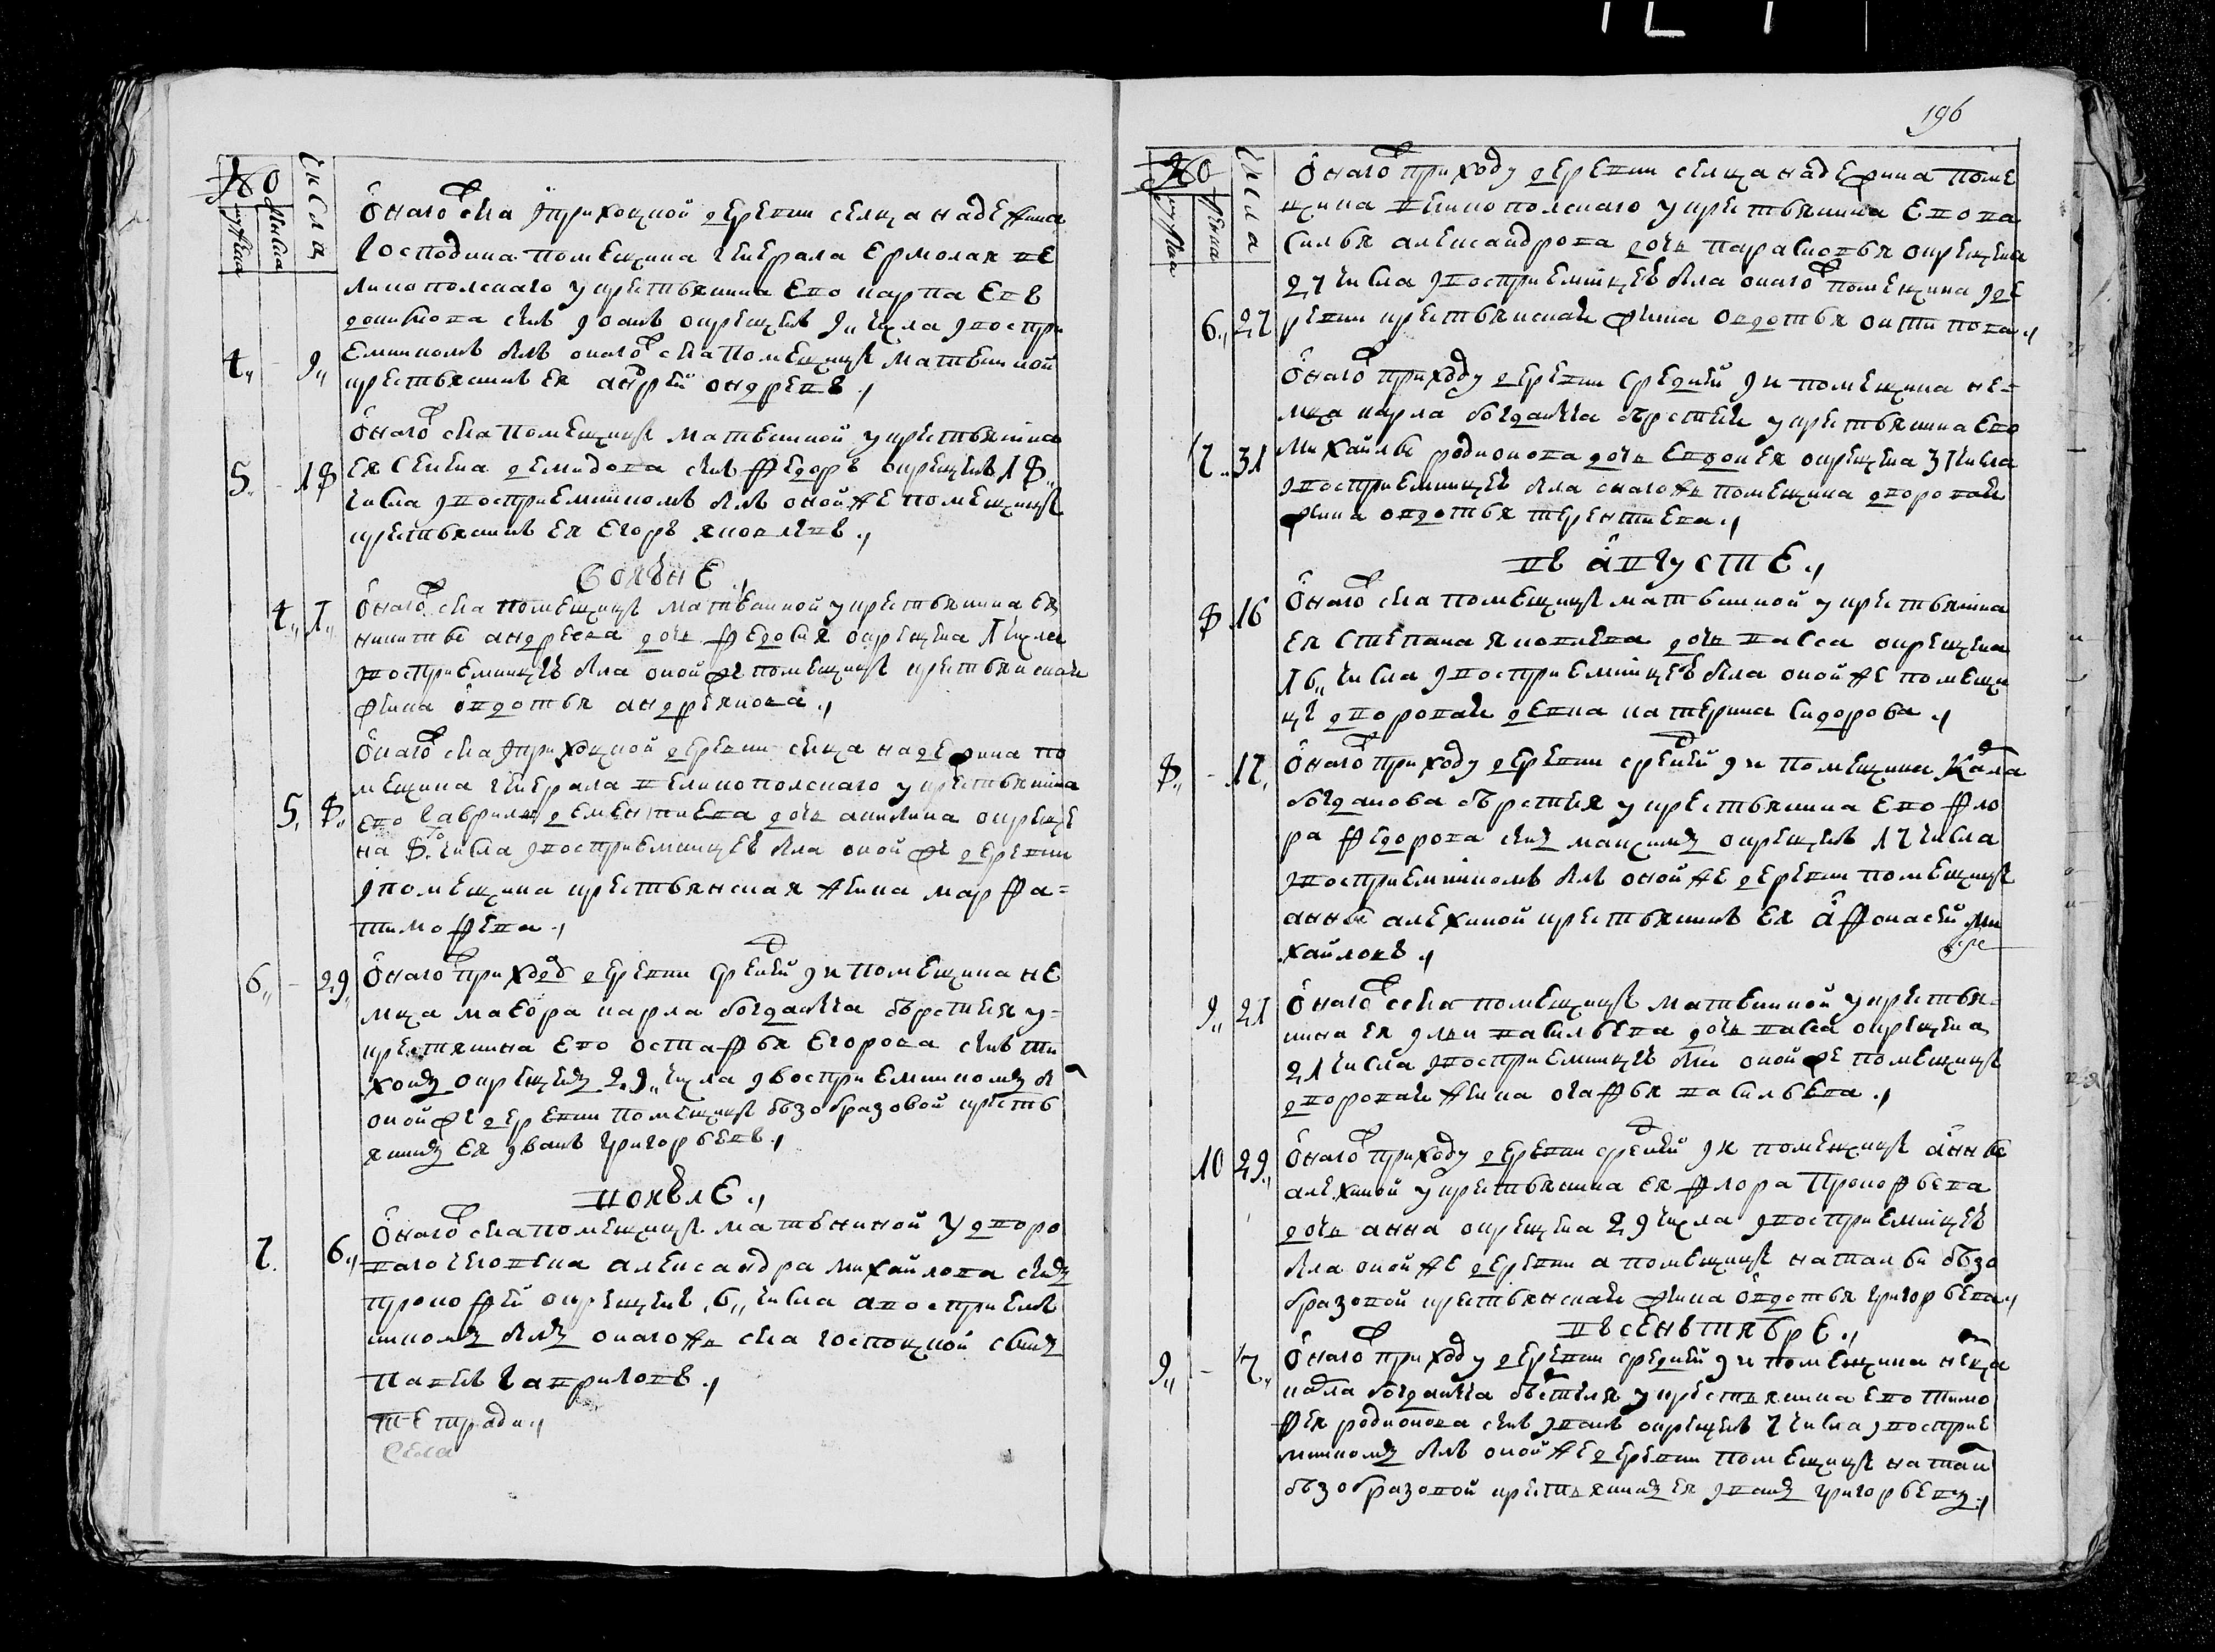 №
числа
мужеска
женска
Онаго села приходской деревни селца надежина
господина помещика генерала ермолая ве
ликополскаго у крестьянина ево карпа ев
сынъ иванъ окрещенъ 9 числа і воспри
4 9
емникомъ былъ онаго села помещицы матвеиной
крестьянинъ ея андрей ондреевъ
Онаго села помещицы матвеиной у крестьянина
5 18
ея семена демидова сынъ федоръ окрещенъ 18
числа і восприемникомъ былъ оной же помещицы
крестьянинъ ея егоръ яковлевъ
Воіюне
4 1
Онаго села помещицы матвеиной у крестьянина ея
никиты андреева дочь федосья окрещена 1 числа
і восприемницею была оной же помещицы крестьянская
жена овдотья
Онаго села приходской деревни селца надежина по
мещика генерала великополскаго у крестьянина
5 8
ево гаврилы дементиева дочь акилина окреще
на 8 числа і восприемницею была оной же деревни
і помещика крестьянская жена марфа
тимофеева
6 29
Онаго приходу деревни средней и помещика не
мца маеора карла богданыча у
крестянина ево остафья егорова сынъ ти
хонъ окрещенъ 29 числа і восприемникомъ бы
оной же деревни помещицы бъзобразовой кресть
янинъ ея іванъ григорьевъ
Воіюле
Онаго села помещицы матвеиной у дворо
7 6
ваго человека александра михайлова сынъ
прокофей окрещенъ 6 числа а восприем
никомъ былъ онагожъ села
павелъ гавриловъ
тетради
села
196
№
числа
мужеска
женска
Онаго приходу деревни селца надежина поме
щика великополскаго у крестьянина ево ва
силья александрова дочь парасковья окрещена
27 числа і восприемницею была онаго помещика і де
6 27
ревни крестьянская жена овдотья
Онаго приходу деревни средней и помещика не
мца карла богданыча у крестьянина ево
7 31
михайлы родионова дочь окрещена 31 числа
і восприемницею была онагожъ помещика дворовая
жена овдотья терентиева
въ августе
8 16
Онаго села помещицы матвеиной у крестьянина
ея степана яковлева дочь васса окрещена
16 числа і восприемницею была оной же помещи
цы дворовая девка катерина сидорова
8 17
Онаго приходу деревни средней и помещика кала
богданова у крестьянина ево фло
ра федорова сынъ максимъ окрещенъ 17 числа
і восприемникомъ былъ оной же деревни помещицы
анны алехиной крестьянинъ ея афонасей ми
хайловъ
9 21
Онаго села помещицы матвеиной у крестья
нина ея ильи васильева дочь васса окрещена
21 числа і восприемницею была оной же помещицы
дворовая жена агафья васильева
10 29
Онаго приходу деревни средней и помещицы анны
алехиной у крестьянина ея флора прокофьева
дочь анна окрещена 29 числа і восприемницею
была оной же деревни а помещицы натальи бъзо
бразовой крестьянская жена овдотья григорьева
въсеньтябре
9 7
Онаго приходу деревни средней и помещика немца
карла богданыча у крестьянина ево тимо
фея родионова сынъ иванъ окрещенъ 7 числа і восприе
мникомъ былъ оной же деревни помещицы натали
бъзобразовой крестьянинъ ея іванъ григорьевъ